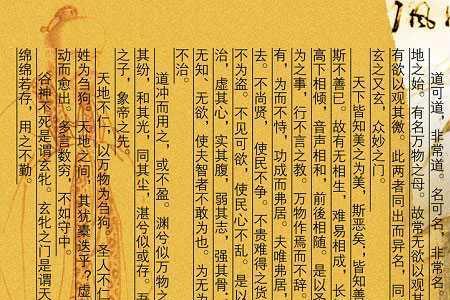 道可道,非常道。名可名,非常名。
地之始。有名万物之母。故常无欲以观其
有欲以观其微。此两者同出而异名,同
玄之又玄,众妙之门。
天下皆知美之为美,斯恶矣;皆知善
斯不善已。故有无相生,难易相成,长
高下相倾,音声相和,前後相随。是以
之事,行不言之教。万物作焉而不辞。
有,为而不恃,功成而弗居。夫唯弗居,
去。不尚贤,使民不争。不贵难得之货
不为盗。不见可欲,使民心不乱。是以
治,虚其心,实其腹,弱其志,强其骨;
无知、无欲,使夫智者不敢为也。为无为
不治。
道冲而用之,或不盈。渊兮似万物之
其纷,和其光,同其尘,湛兮似或存。吾
之子,象帝之先。
天地不仁,以万物为刍狗。圣人不仁
姓为刍狗。天地之间,其犹橐迭乎?虚
动而愈出。多言数穷,不如守中。
谷神不死是谓玄牝。玄牝之门是谓天
绵绵若存,用之不勤